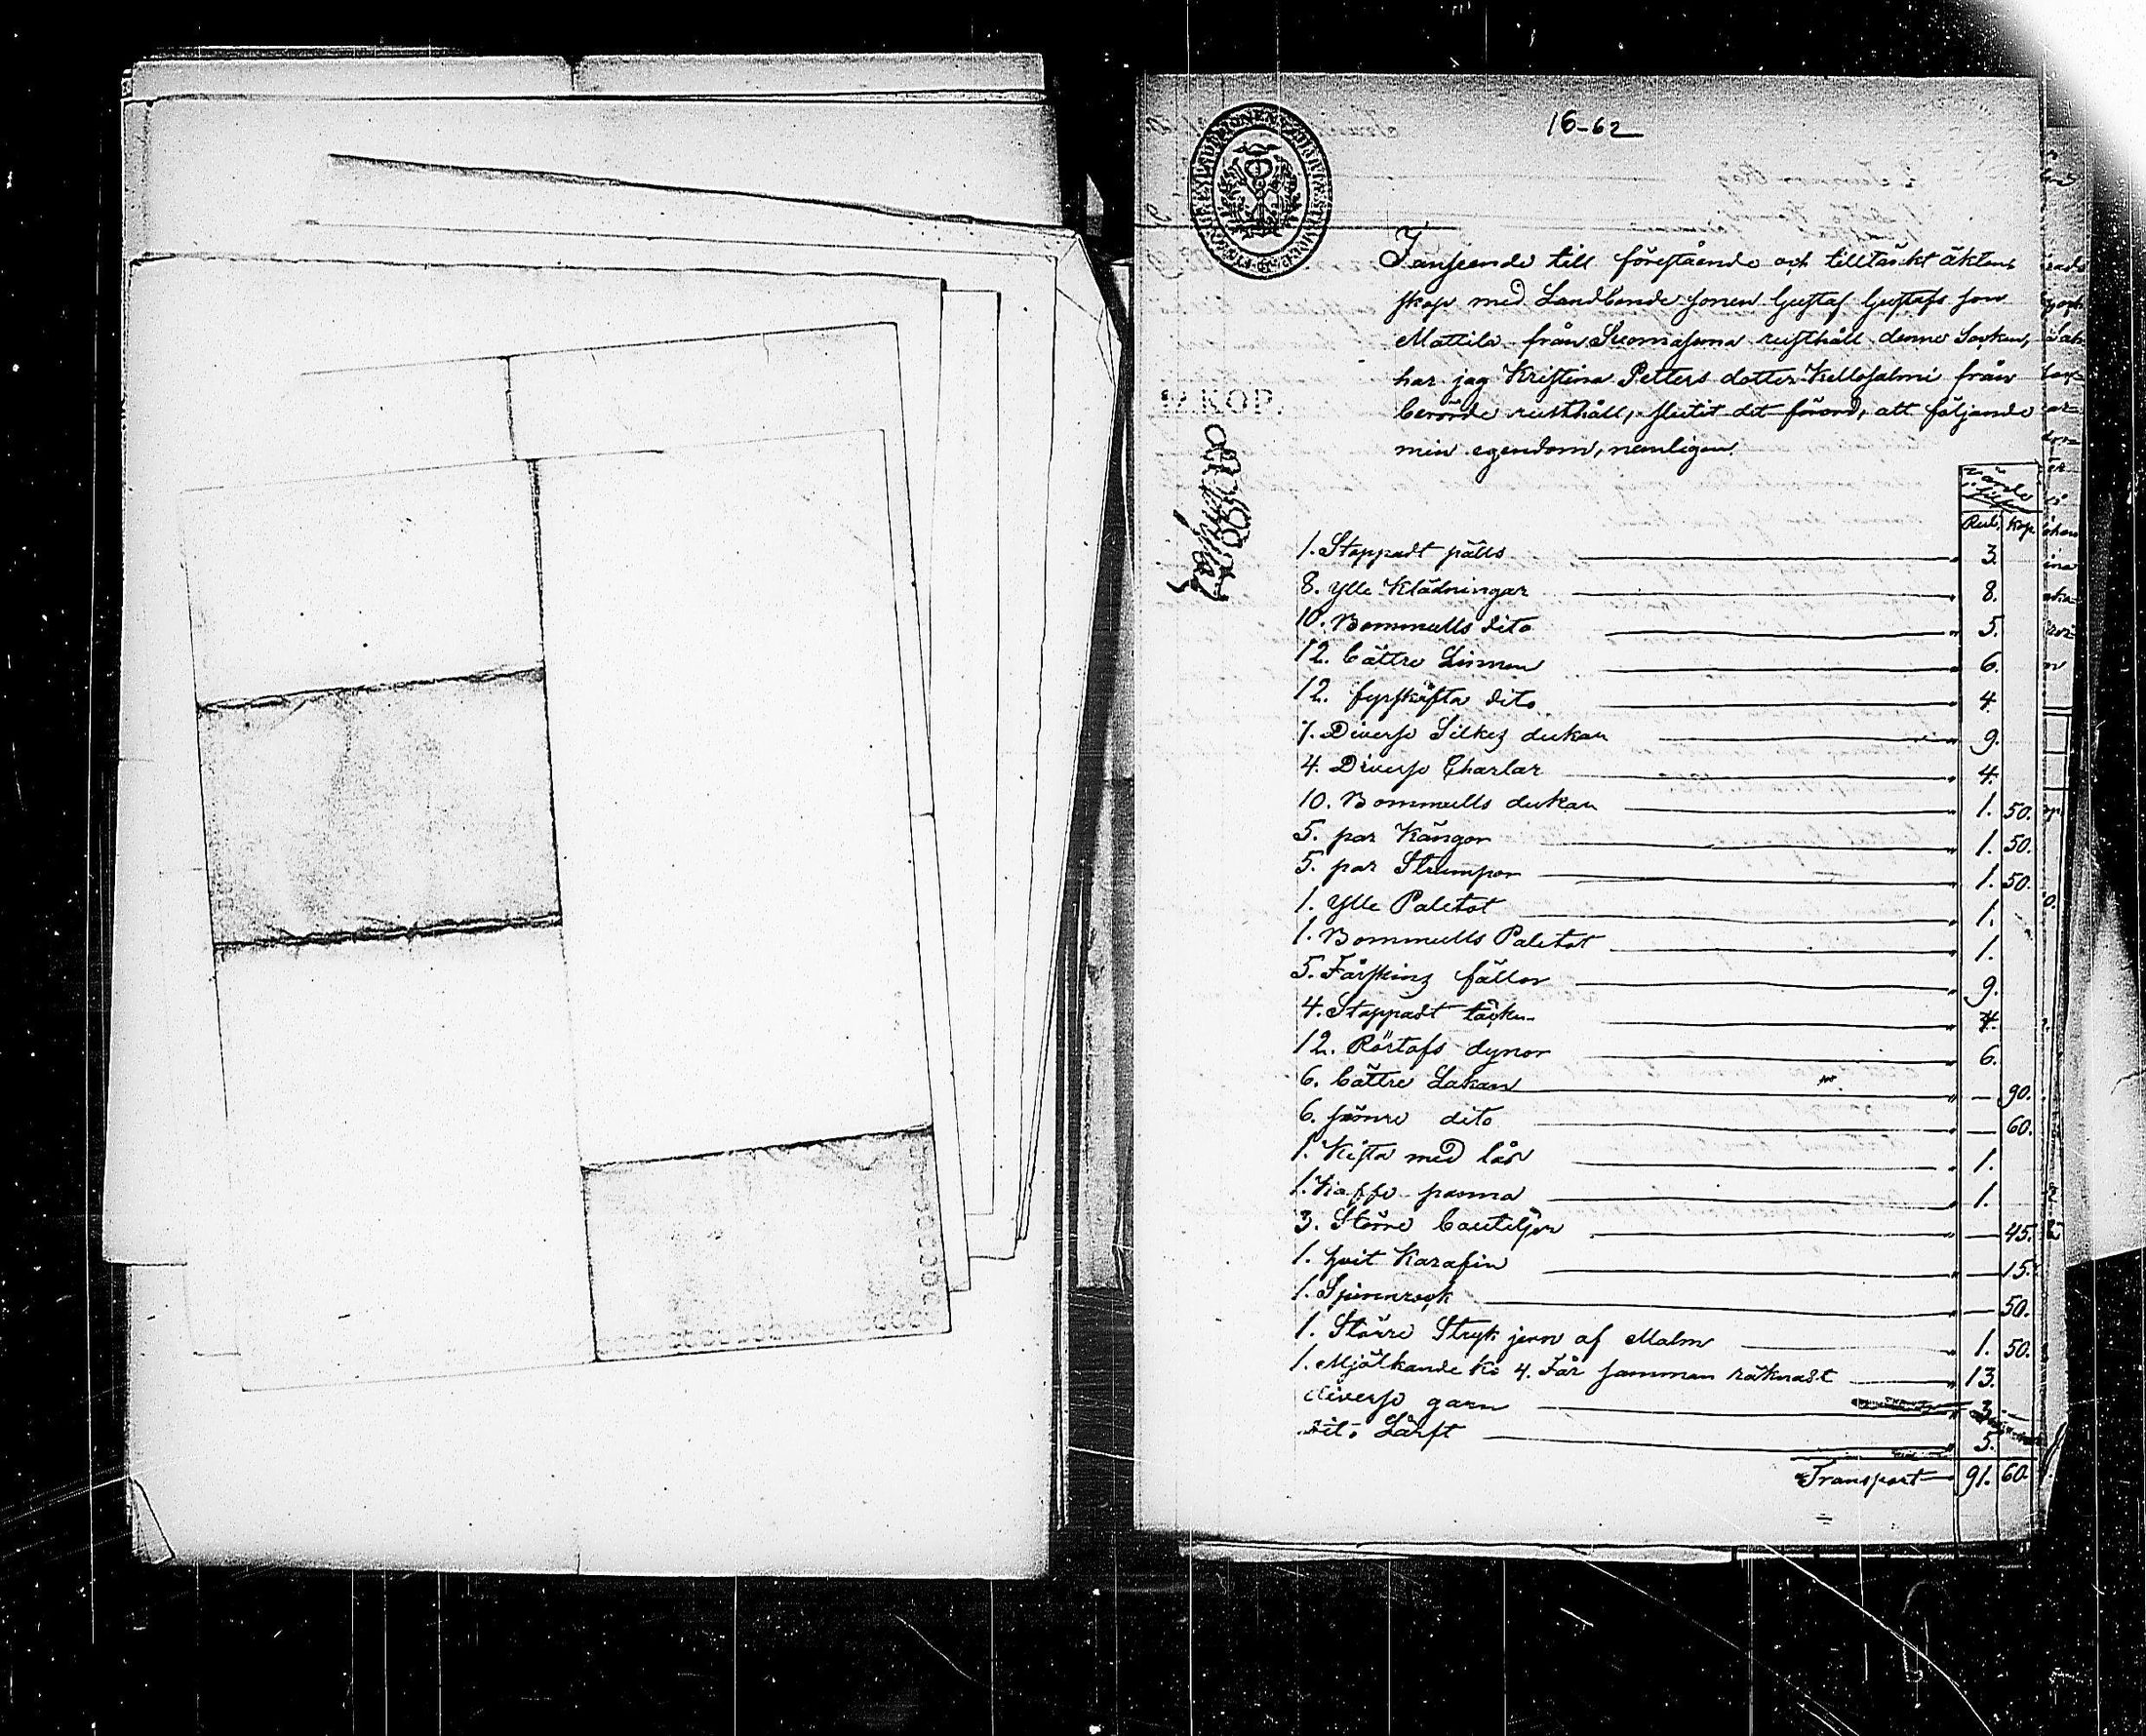 16-62
I anseende till förestående och tilltänkt äkten-
skap med Landbonde sonen Gustaf Gustafs son
Mattila från Suomasema rusthåll denne Socken,
har jag Kristina Petters dotter Kellosalmi från
berörde rusthåll, slutit det förord, att följande
min egendom, nemligen.
12.KOP.
Rub. Kop.
1. Stoppadt pälls 3.
8. Ylle Klädningar 8.
10. Bommulls dito 5.
12. bättre Linnen 6.
12. fyrskäfta dito 4.
7. Diverse Silkes dukar 9.
4. Diverse Charlar 4.
10. Bommulls dukar 1. 50.
5. par Kängor 1. 50.
5. par Strumpor 1. 50.
1. Ylle Paletot 1.
1. Bommulls Paletot 1.
5. Fårskins fällar 9.
4. Stoppadt täcken 4.
12. dynor 6.
6. bättre Lakan — 90.
6. sämre dito — 60.
1. Kista med lås 1.
1. Kaffe panna 1.
3. Större bouteljer — 45.
1. hvit Karafin — 15.
1. Spinnrock — 50.
1. Större Stryk jern af Malm 1. 50.
1. Mjölkande Ko 4. Får samman räknadt 13.
diverse garn 3.
dit: Lärft 5.
Transport 91. 60.